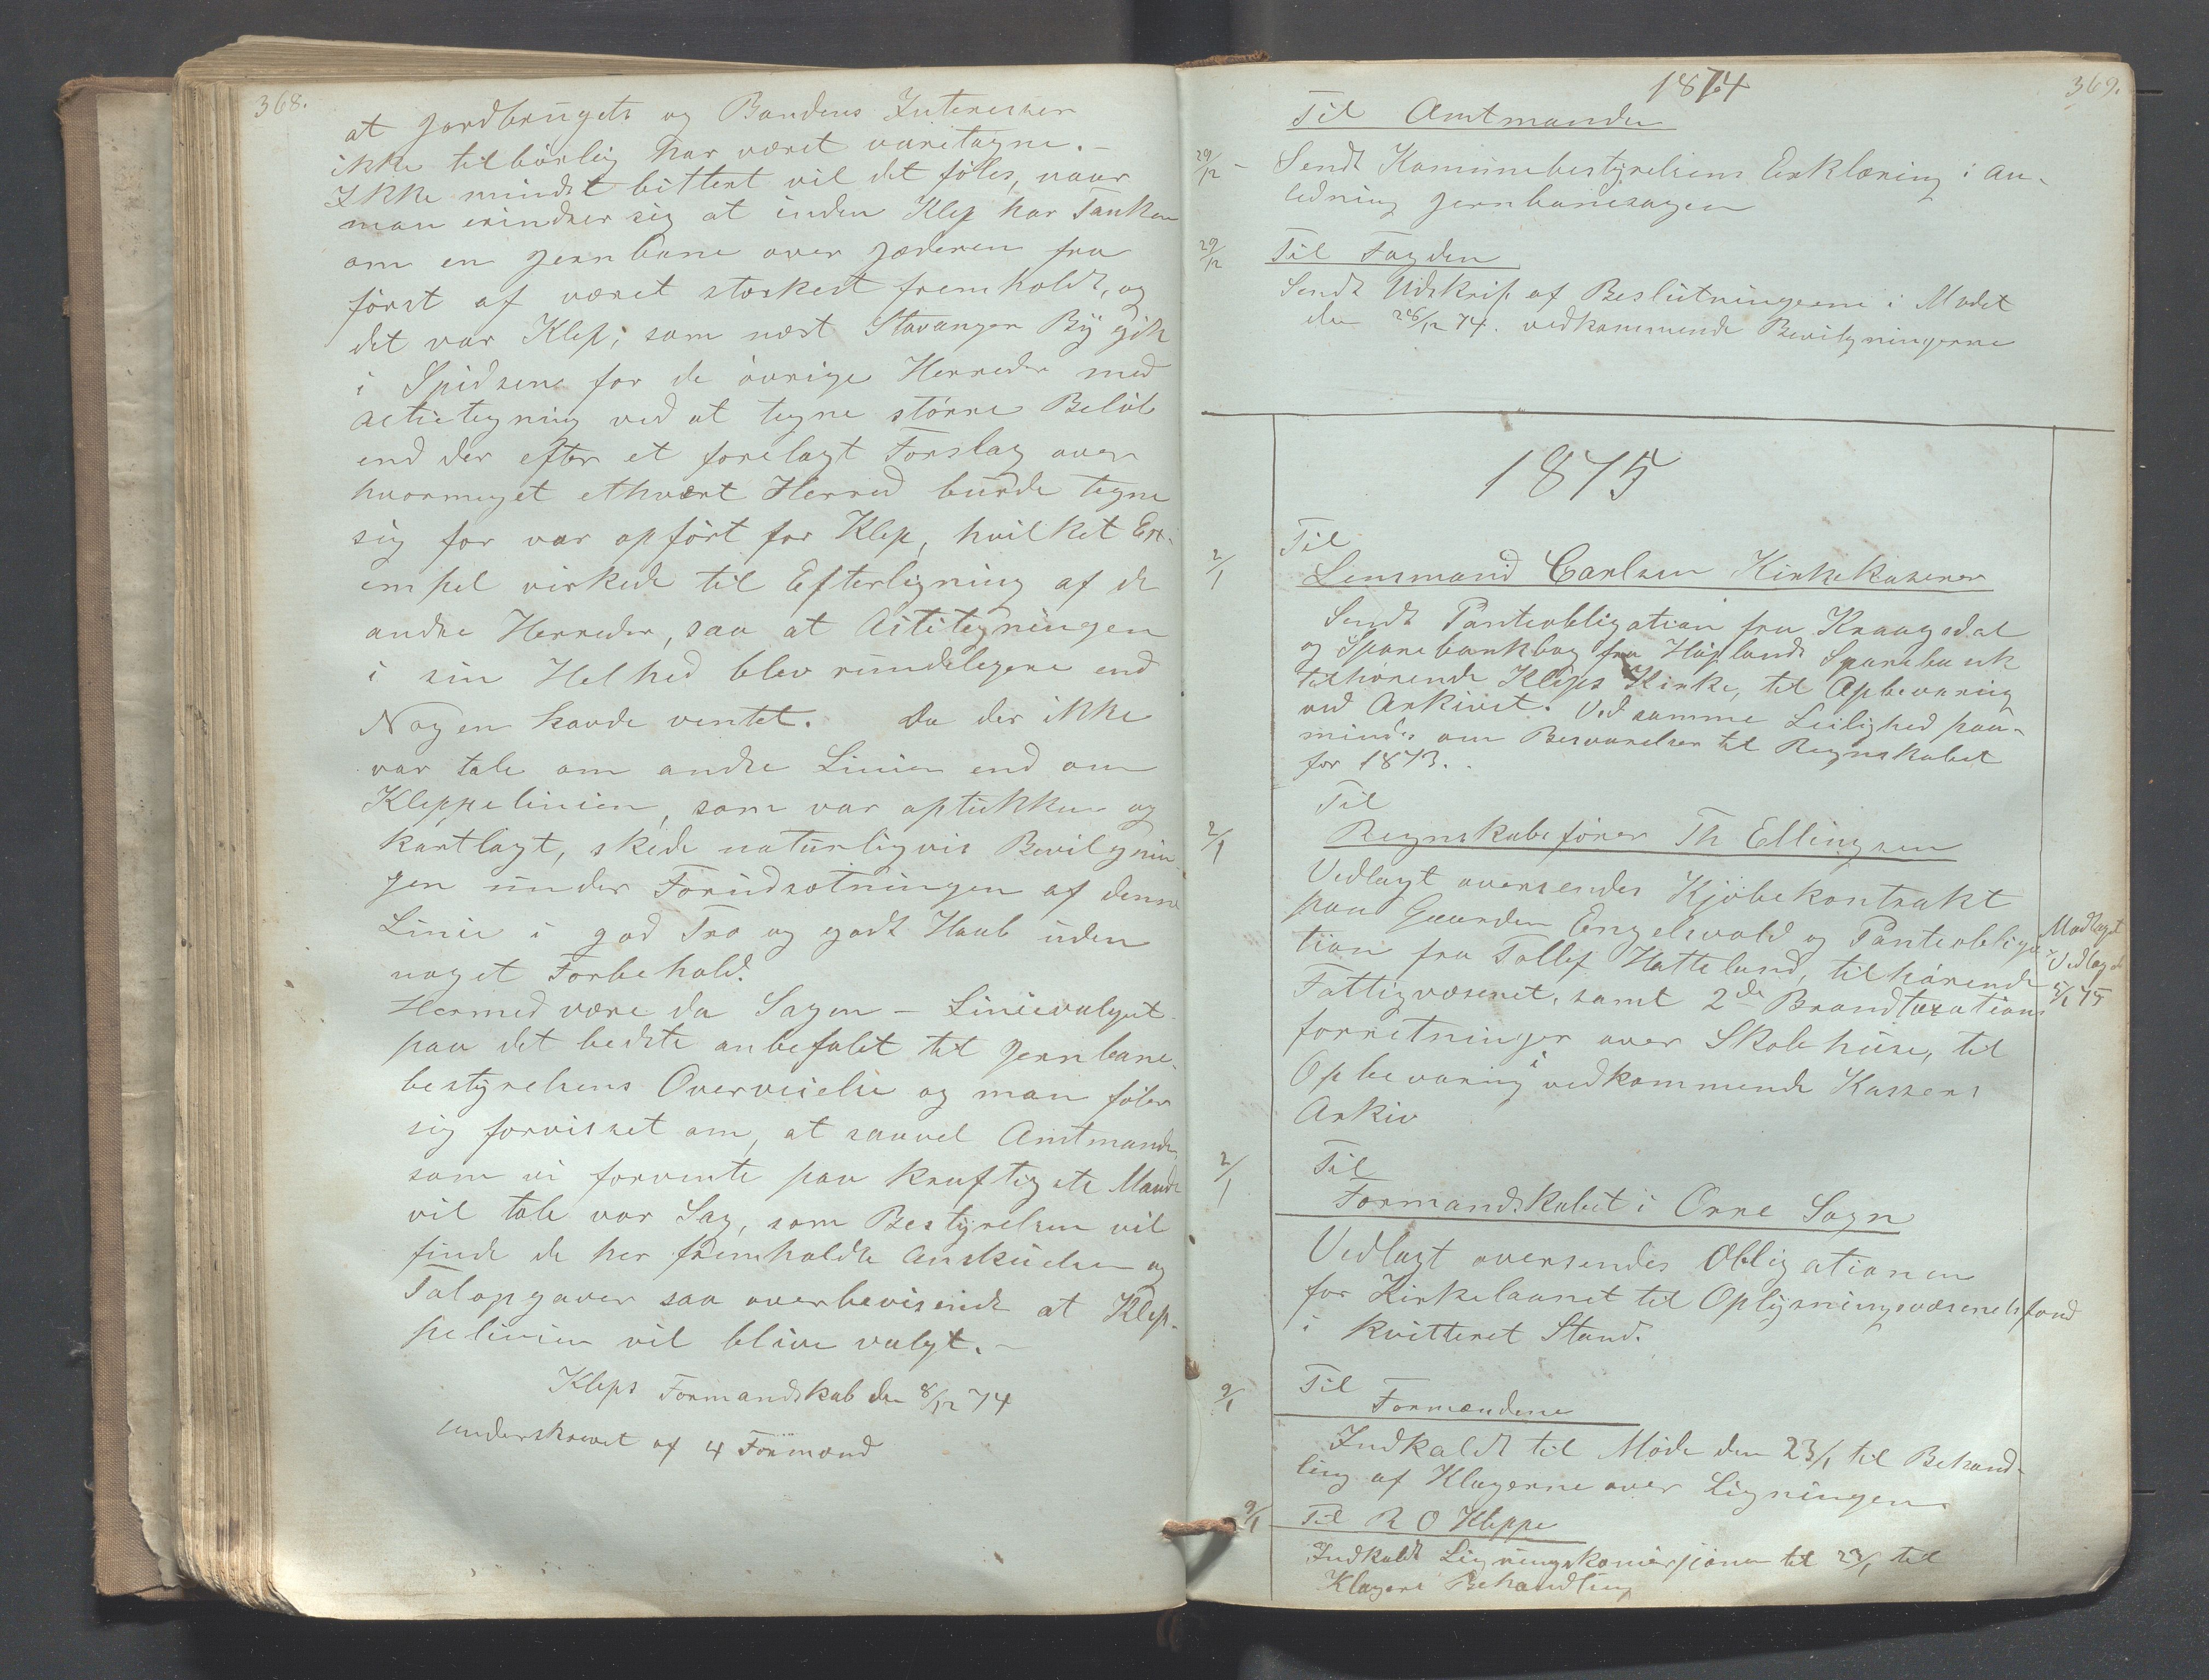 368.
at Jordbrugets og Bondens Interesser
ikke tilbørlig har været varetagne. –
Ikke mindst bittert vil det føles, naar
man erindrer sig at inden Klep har Tanken
om en Jernbane over Jæderen fra
først af været stærkest fremholdt, og
det var Klep; som næst Stavanger By gik
i Spidsene for de øvrige Herreder med
actietegning ved at tegne større Beløb
end der efter et forelagt Forslag over
hvormeget ethvert Herred burde tegne
sig for var opført for Klep, hvilket Ex-
empel virkede til Efterligning af de
andre Herreder, saa at Actietegningen
i sin Helhed blev rundeligere end
Nogen havde ventet. Da der ikke
var tale om andre Linier end om
Kleppelinien, som var optukken og
kartlagt, skede naturligvis Bevilgnin-
gen under Forudsætningen af denne
Linie i god Tro og godt Haab uden
noget Forbehold.
Hermed være da Sagen – Linievalget –
paa det bedste anbefalet til Jernbane-
bestyrelsens Overveielse og man føler
sig forvisset om, at saavel Amtmanden
som vi forvente paa kraftigste Maade
vil tale vor Sag, som Bestyrelsen vil
finde de her fremholdte Anskuelser og
Talopgaver saa overbevisende at Klep-
pelinien vil blive valgt. –
Kleps Formandskab den 8/12 74
underskrevet af 4 Formænd
1874
369.
Til Amtmanden
29/12 – Sendt Komunebestyrelsens Erklæring i an-
ledning Jernbanesagen
29/12 Til Fogden
Sendt Udskrift af Beslutningerne i Mødet
den 28/12 74. vedkommende Bevilgningerne
1875
Til
2/1 Lensmand Carlsen Kirkekaserer
Sendt Pantobligation fra Kraagedal
og Sparebankbog fra Høylands Sparebank
tilhørende Kleps Kirke, til Opbevaring
ved Arkivet. Ved samme Leilighed paa-
mindes om Besvarelser til Regnskabet
for 1873.
Til
2/1 Regnskabsfører Th Ellingsen
Vedlagt oversendes Kjøbekontrakt
paa Gaarden Engelsvold og Pantobliga-
tion fra Tollef Hatteland, tilhørende
Fattigvæsenet, samt 2de Brandtaxations
forretninger over Skolehuse, til
Opbevaring i vedkommende Kassers
Arkiv
Modtaget
Vedlagt
5/1 75
2/1 Til
Formandskabet i Orre Sogn
Vedlagt oversendes Obligationen
for Kirkelaanet til Oplysningsvæsenets fond
i kvitteret Stand.
9/1 Til
Formændene
Indkaldt til Møde den 23/1 til Behand-
ling af Klagerne over Ligningen
9/1 Til R O Kleppe
Indkaldt Ligningskomissionen til 23/1 til
Klagers Behandling